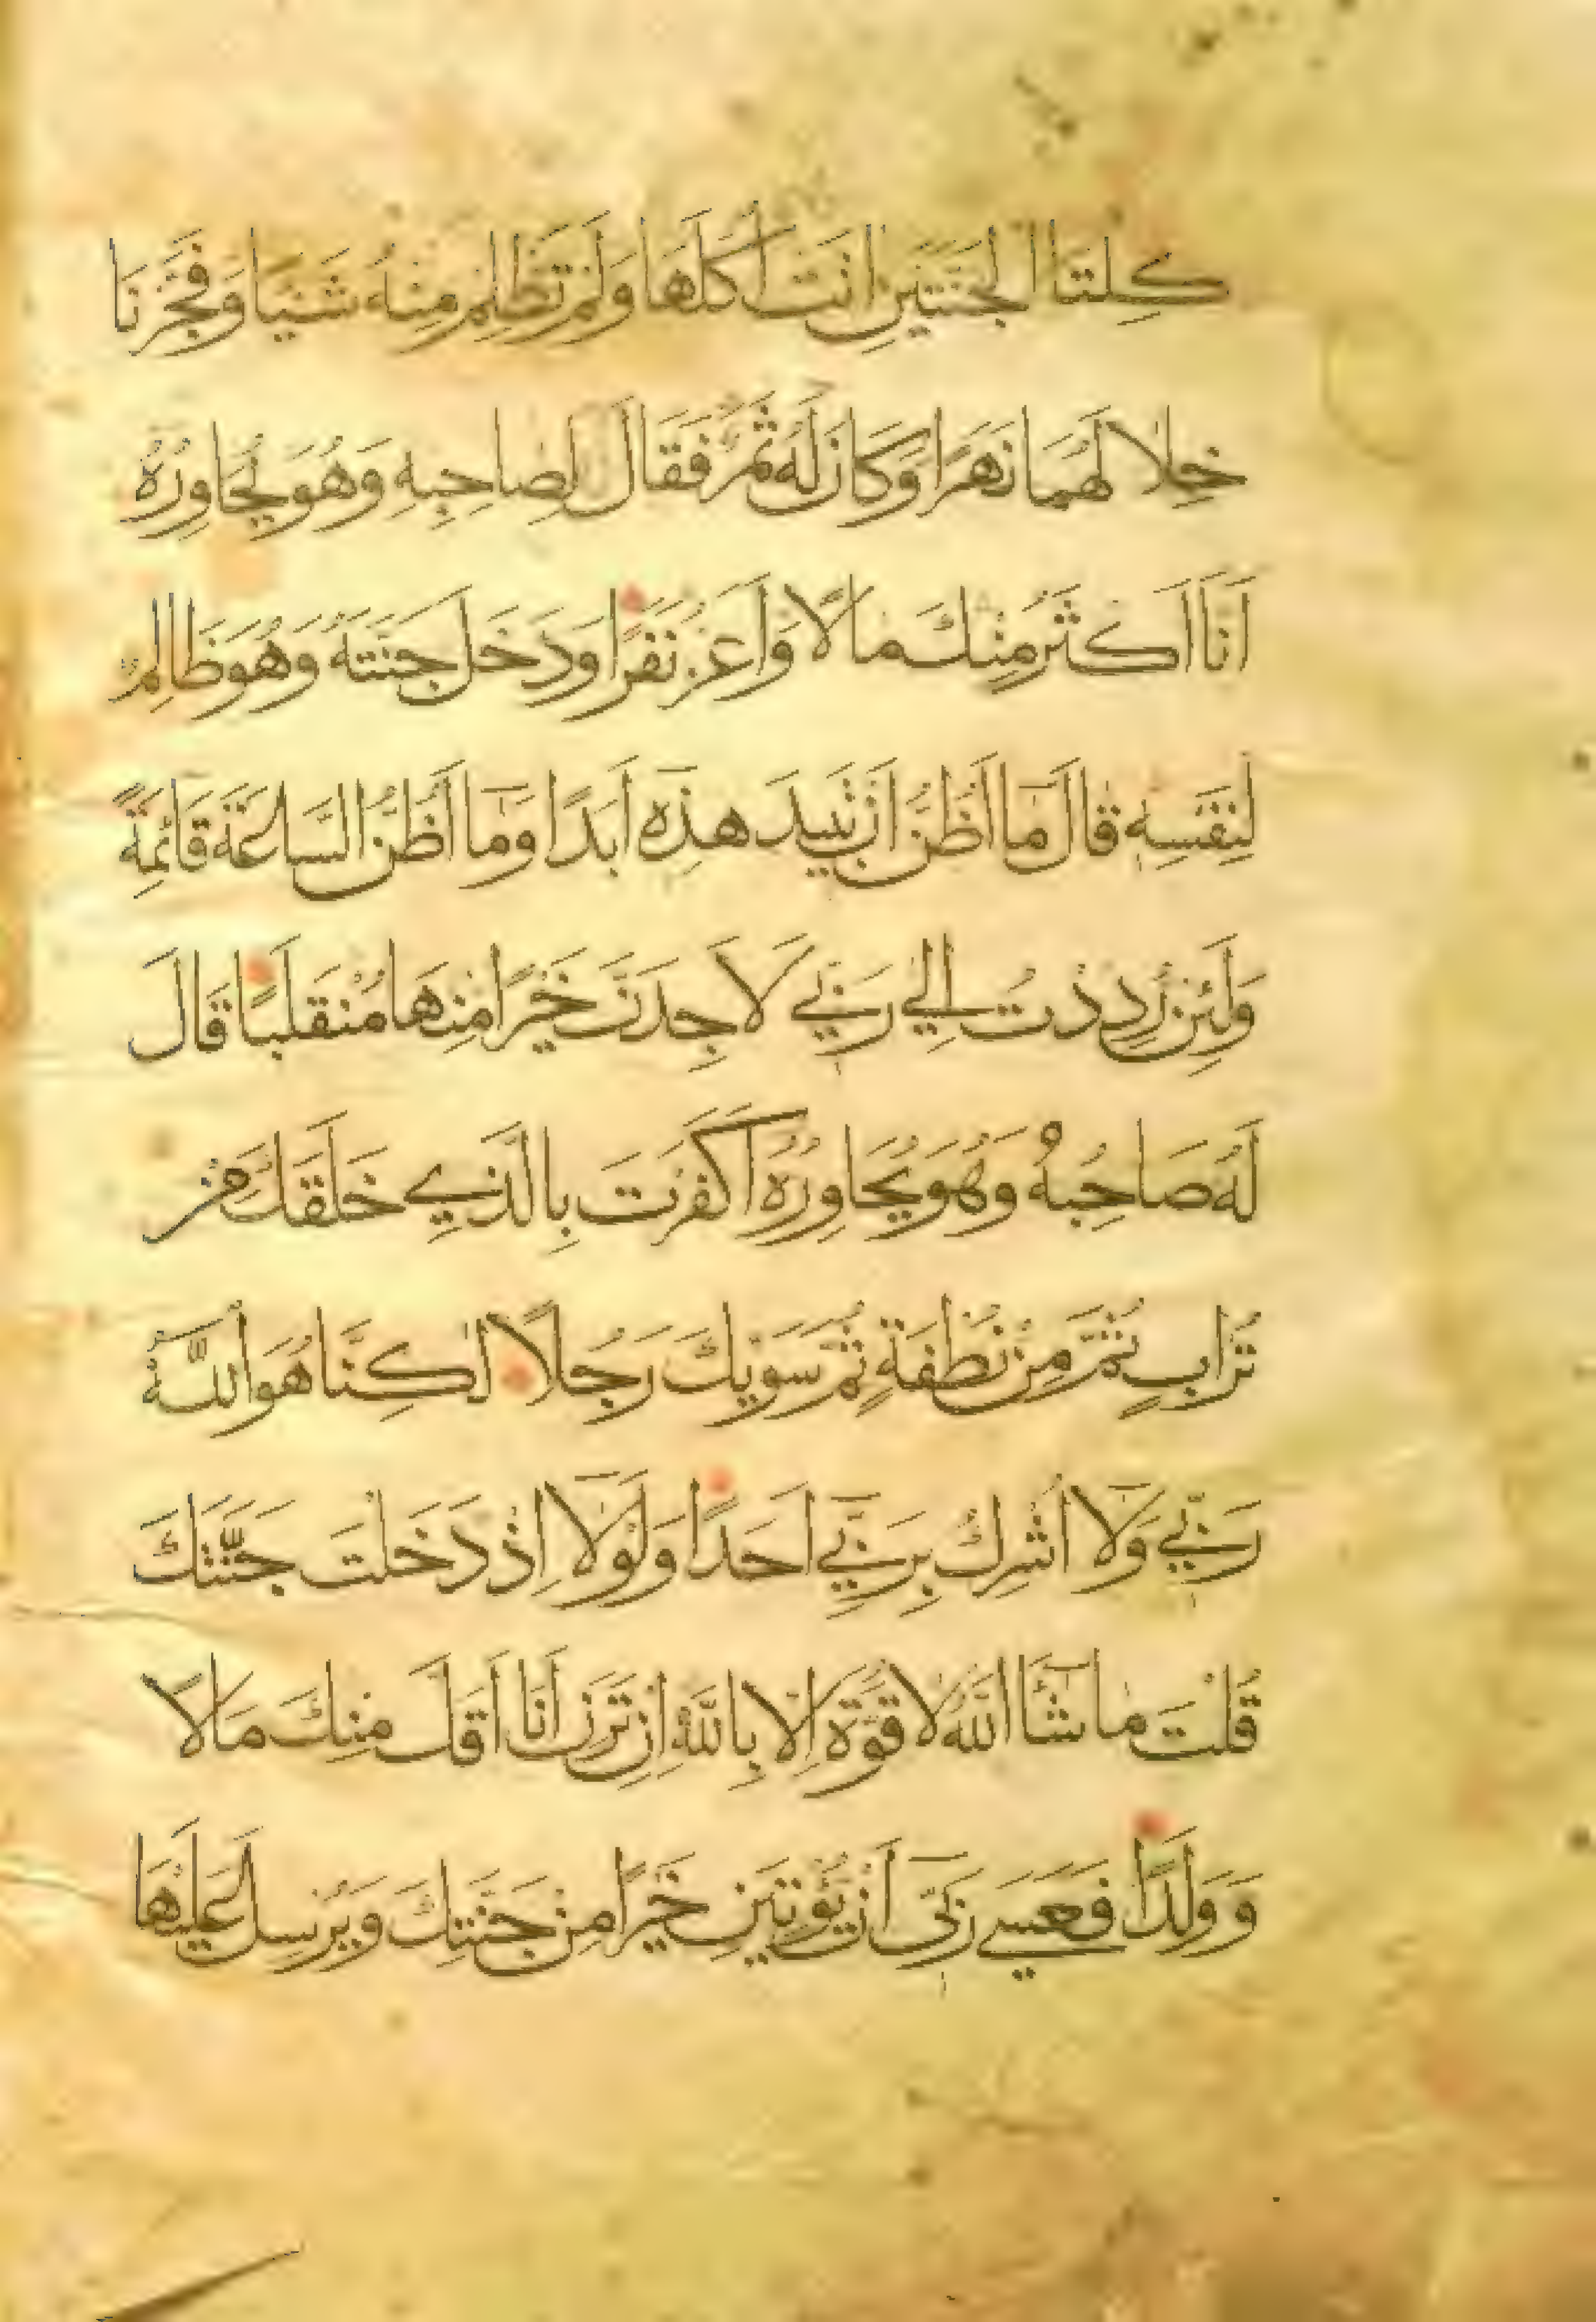 كِلتَا الجَنَّتَينِ اٰتَت اُكُلَهَا وَلَم تَظلِم مِنهُ شَيئًا وَفَجَّرنَا
خِلالَهُمَا نَهَرًا وَكَانَ لَهُ ثَمَرٌ فَقَالَ لِصَاحِبِهِ وَهُوَ يُحَاوِرُهُ
اَنَا اَكثَرُ مِنكَ مَالًا وَاَعَزُّ نَفَرًا وَدَخَلَ جَنَّتَهُ وَهُوَ ظَالِمٌ
لِنَفسِهِ قَالَ مَا اَظُنُّ اَن تَبِيدَ هٰذِهِ اَبَدًا وَمَا اَظُنُّ السَّاعَةَ قَائِمَةً
وَلَئِن رُدِدتُ اِلٰي رَبِّي لَاَجِدَنَّ خَيرًا مِنهَا مُنقَلَبًا قَالَ
لَهُ صَاحِبُهُ وَهُوَ يُحَاوِرُهُ اَكَفَرتَ بِالَّذِي خَلَقَكَ مِن
تُرَابٍ ثُمَّ مِن نُطفَةٍ ثُمَّ سَوّٰيكَ رَجُلًا لٰكِنَّا هُوَ اللّٰهُ
رَبِّي وَلَا اُشرِكُ بِرَبِّي اَحَدًا وَلَولَا اِذ دَخَلتَ جَنَّتَكَ
قُلتَ مَا شَآءَ اللّٰهُ لَا قُوَّةَ اِلَّا بِاللّٰهِ اِن تَرَنِ اَنَا اَقَلَّ مِنكَ مَالًا
وَوَلَدًا فَعَسٰي رَبِّي اَن يُؤتِيَنِ خَيرًا مِن جَنَّتِكَ وَيُرسِلَ عَلَيهَا